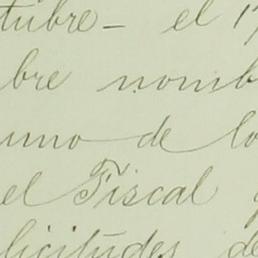 tubre_ el 1
bre nomb
uno de lo
el Fiscal
licitudes de